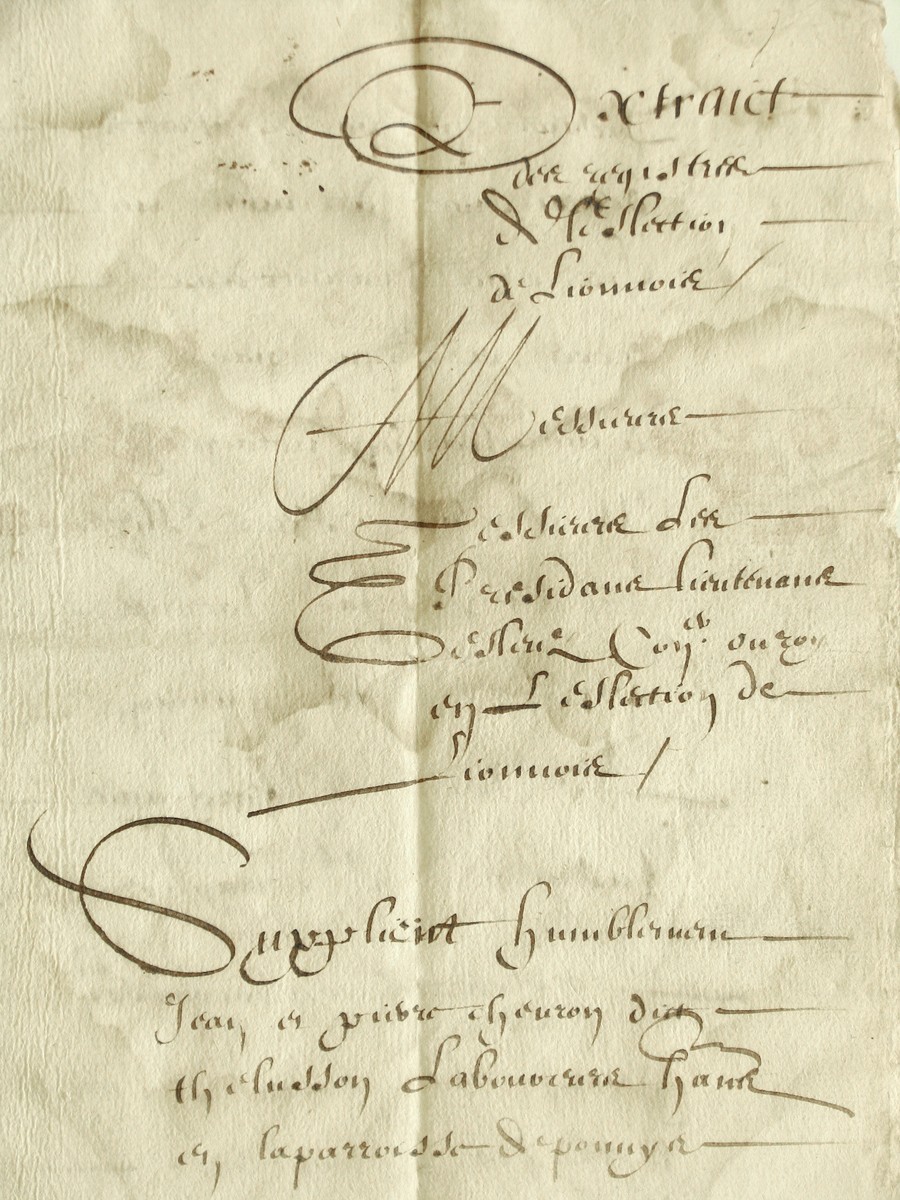 Extraict
des registres
de leslection
de Lionnois /
Messieurs
Messieurs Les
Presidans Lieutenans
Esleuz Con.ers du roy
en Leslection de
Lionnois /
Supplient humblement
Jean et pierre theuron dict
thelusson Laboureurs hans
en laparroisse de